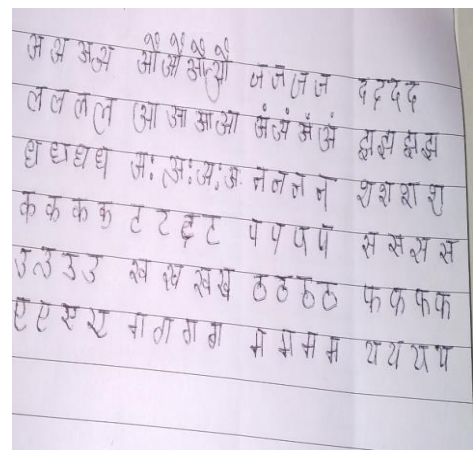 अ अ अ अ औ औ औ औ ज ज ज ज द द द द
ल ल ल ल आ आ आ आ अं अं अं अं झ झ झ झ
ध ध ध ध अः अः अः अः न न न न श श श श
क क क क ट ट ट ट प प प प स स स स
उ उ उ उ ख ख ख ख ठ ठ ठ ठ फ फ फ फ
ए ए ए ए ग ग ग ग म म म म य य य य